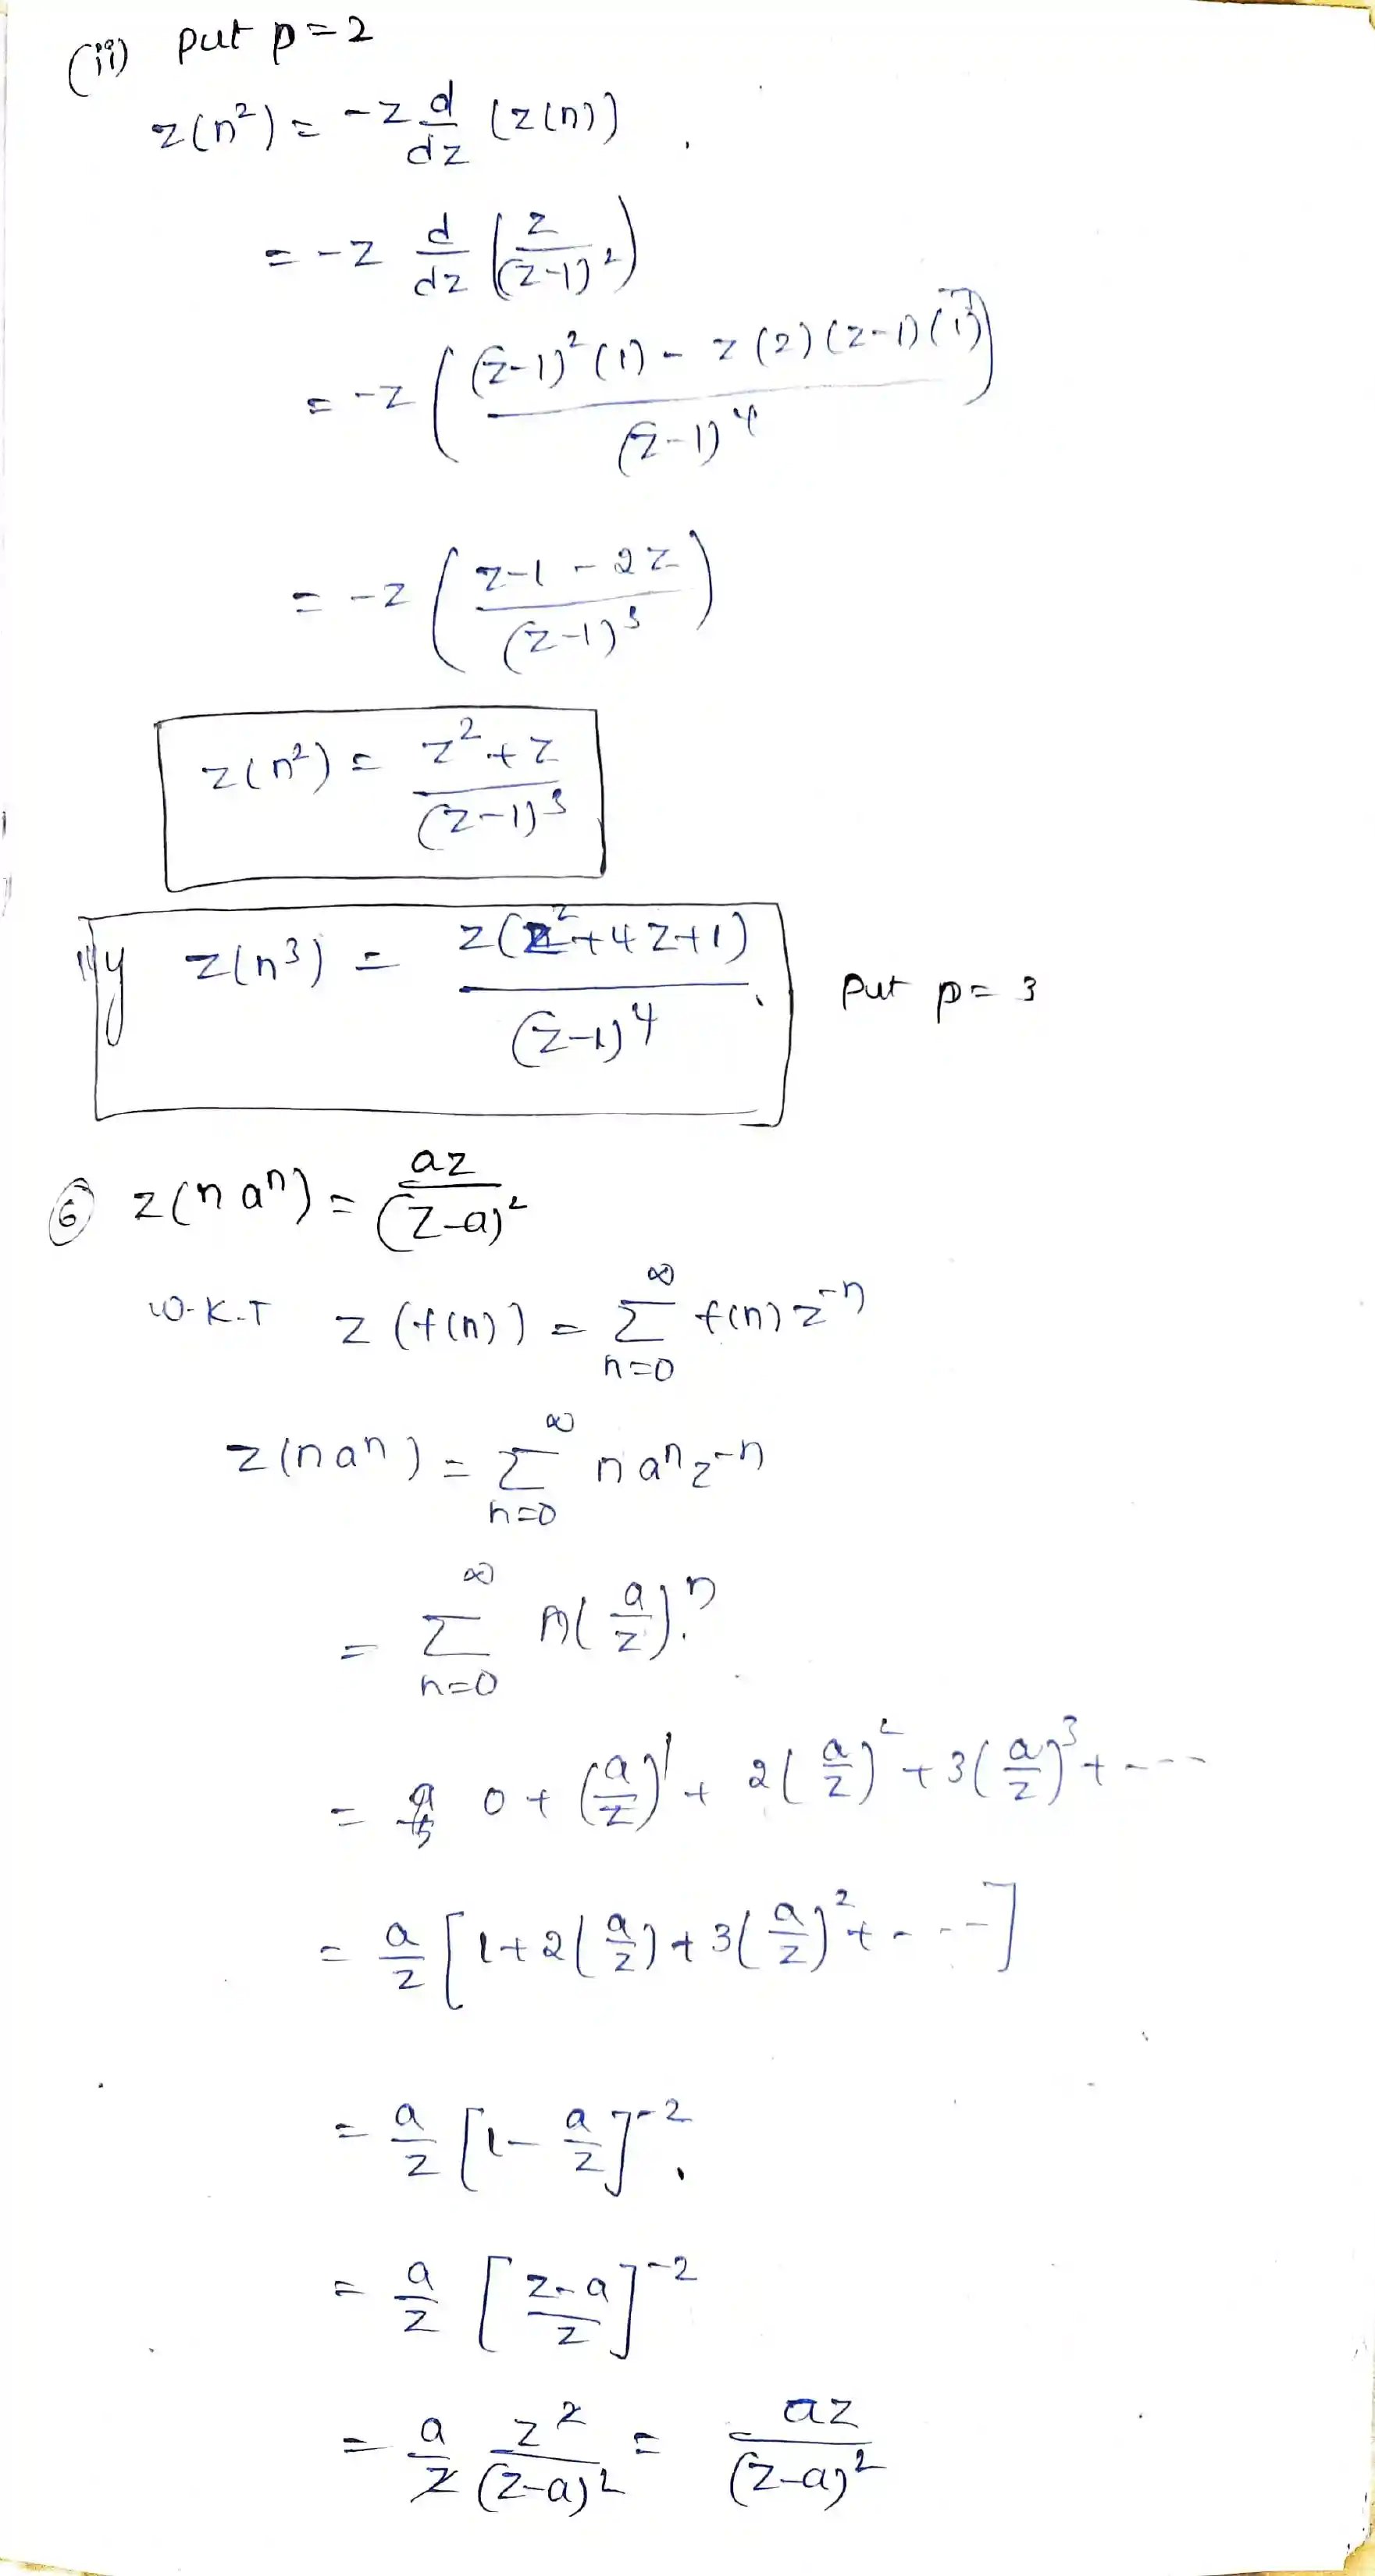 (ii) put p=2
z(n²) = -z d/dz (z(n))
= -z d/dz (z/(z-1)²)
= -z ((z-1)²(1) - z(2)(z-1)(1))/(z-1)⁴
= -z ((z-1-2z)/(z-1)³)
z(n²) = (z²+z)/(z-1)³
lly z(n³) = z(z²+4z+1)/(z-1)⁴ Put p=3
⑥ z(n aⁿ) = az/(z-a)²
W.K.T z(f(n)) = ∞ Σ n=0 f(n) z⁻ⁿ
z(n aⁿ) = ∞ Σ n=0 n aⁿ z⁻ⁿ
= ∞ Σ n=0 n(a/z)ⁿ
= 0 + (a/z)¹ + 2(a/z)² + 3(a/z)³ + ----
= a/z [1+2(a/z)+3(a/z)²+----]
= a/z [1- a/z]⁻²
= a/z [(z-a)/z]⁻²
= a/z z²/(z-a)² = az/(z-a)²